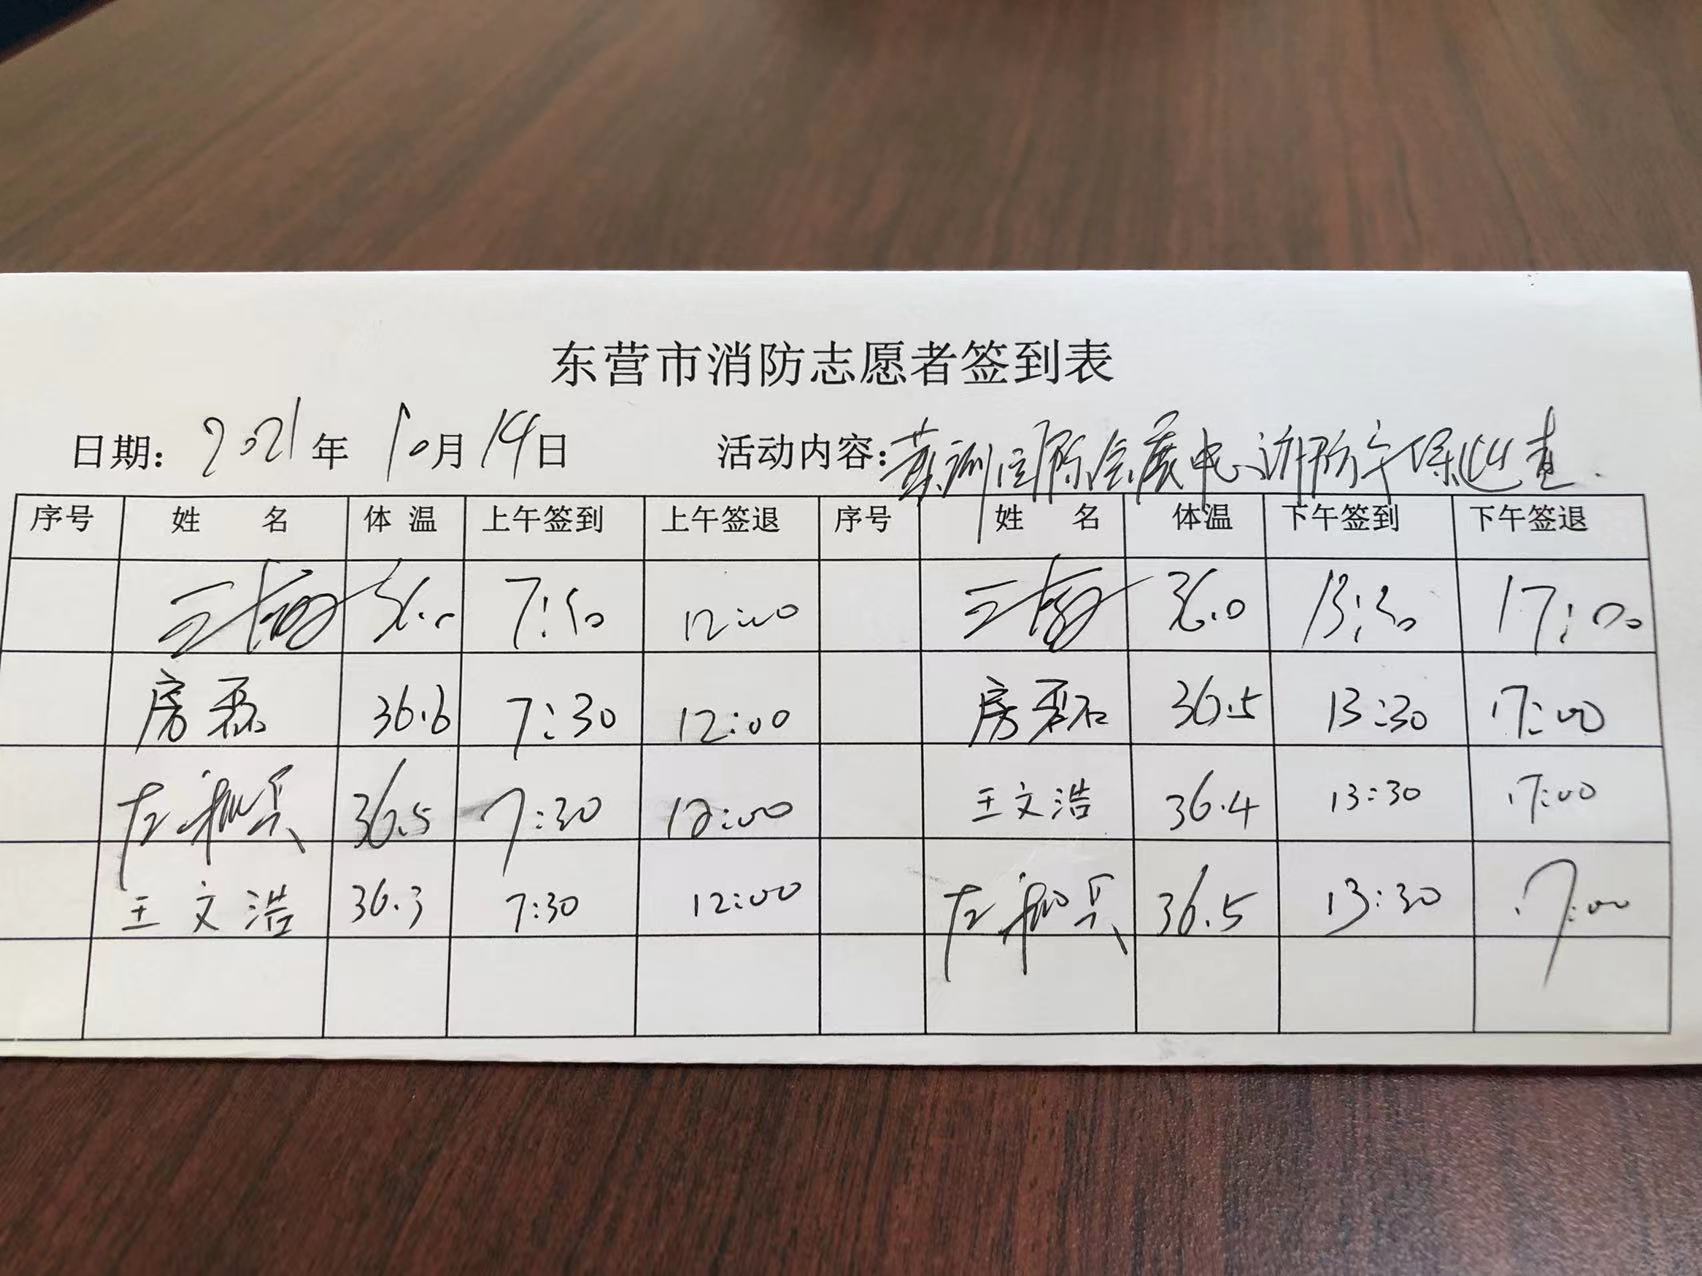 东营市消防志愿者签到表
日期: 2021年 10月 14日 活动内容: 黄河国际会展中心消防安保巡查.
序号 姓 名 体 温 上午签到 上午签退 序号 姓 名 体温 下午签到 下午签退
王 36.0 12:00 王 36.0 13:30 17:00
房磊 36.6 7:30 12:00 房磊 36.5 13:30 17:00
左 兵 36.5 7:30 12:00 王文浩 36.4 13:30 17:00
王文浩 36.3 7:30 12:00 左 兵 36.5 13:30 17:00